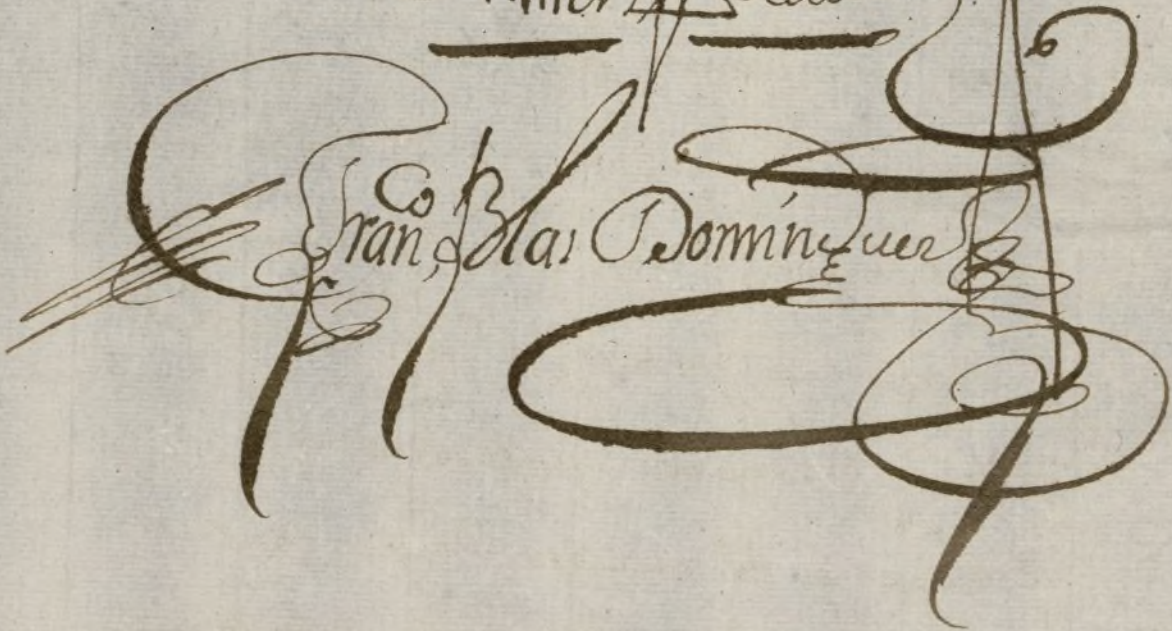 Fran,co Blas Dominguez